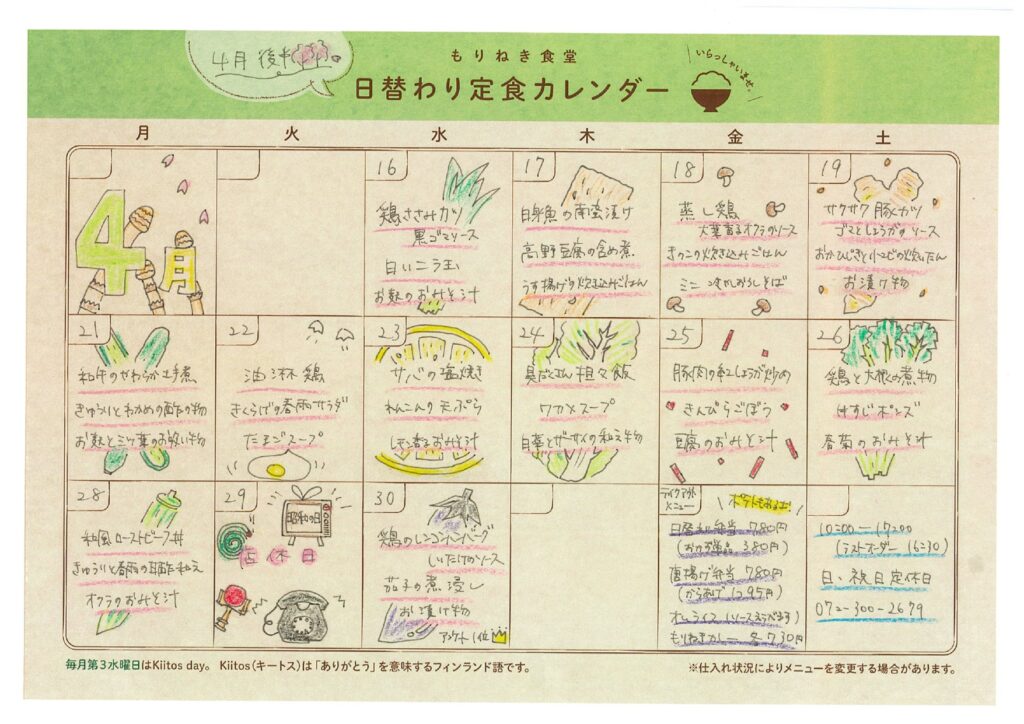 4月 後半
もりねき食堂
日替わり定食カレンダー
いらっしゃいませ。
月 火 水 木 金 土
4月
16
鶏ささみカツ
黒ゴマソース
白いニラ玉
お麩のおみそ汁
17
白身魚の南蛮漬け
高野豆腐の含め煮
うす揚げの炊き込みごはん
18
蒸し鶏
大葉香るオクラのソース
きのこの炊き込みごはん
ミニ 冷やしおろしそば
19
サクサク豚カツ
ゴマとしょうがのソース
おかひじきと小エビの炊いたん
お漬け物
21
和牛のやわらか土手煮
きゅうりとわかめの酢の物
お麩とミツ葉のお吸い物
22
油淋鶏
きくらげの春雨サラダ
たまごスープ
23
サバの塩焼き
れんこんの天ぷら
レモン香るおみそ汁
24
具だくさん担々飯
ワカメスープ
白菜とザーサイの和え物
25
豚肉の紅しょうが炒め
きんぴらごぼう
豆腐のおみそ汁
26
鶏と大根の煮物
牛すじポンズ
春菊のおみそ汁
28
和風ローストビーフ丼
きゅうりと春雨の和え
オクラのおみそ汁
29
昭和の日
店休日
30
鶏のレンコンハンバーグ
しいたけのソース
茄子の煮浸し
お漬け物
アンケート1位
テイクアウト
メニュー
ポテトもあるよ!
日替わり弁当 780円
(おかず単品 380円)
唐揚げ弁当 780円
(からあげ 1コ95円)
オムライス(ソースえらべます)
もりねきカレー 各730円
10:00ー17:00
(ラストオーダー 16:30)
日、祝日定休日
072-300-2679
毎月第3水曜日はKiitos day。 Kiitos(キートス)は「ありがとう」を意味するフィンランド語です。
※仕入れ状況によりメニューを変更する場合があります。